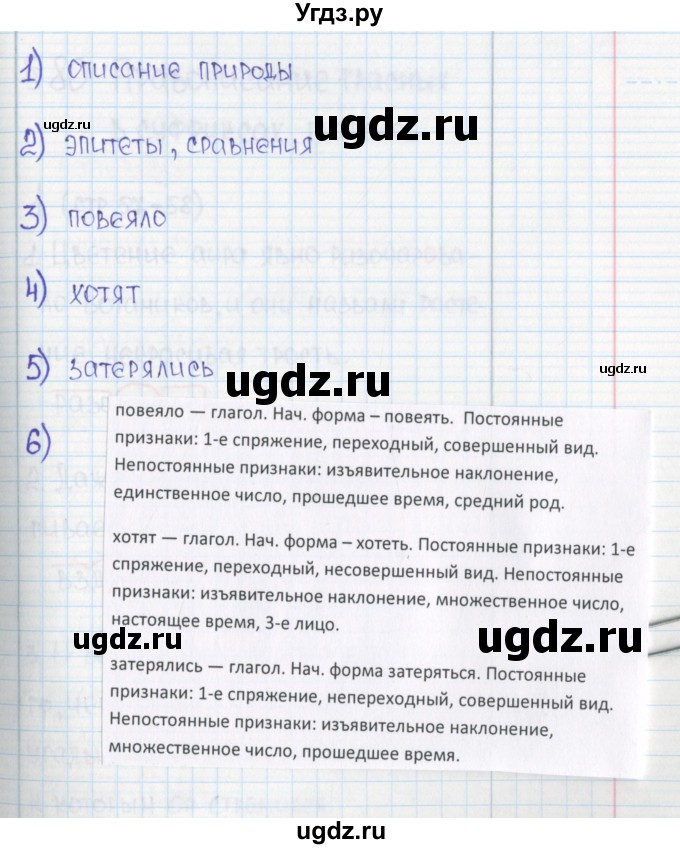 Угдз.ру
1) описание природы
ugdz.ru
ugdz.ru
2) эпитеты, сравнения
3) повеяло
4) хотят
5) затерялись
ugdz.ru
ugdz.ru
6)
повеяло — глагол. Нач. форма – повеять. Постоянные
признаки: 1-е спряжение, переходный, совершенный вид.
Непостоянные признаки: изъявительное наклонение,
единственное число, прошедшее время, средний род.
хотят — глагол. Нач. форма – хотеть. Постоянные признаки: 1-е
спряжение, переходный, несовершенный вид. Непостоянные
признаки: изъявительное наклонение, множественное число,
настоящее время, 3-е лицо.
ugdz.ru
ugdz.ru
затерялись — глагол. Нач. форма затеряться. Постоянные
признаки: 1-е спряжение, непереходный, совершенный вид.
Непостоянные признаки: изъявительное наклонение,
множественное число, прошедшее время.
ugdz.ru